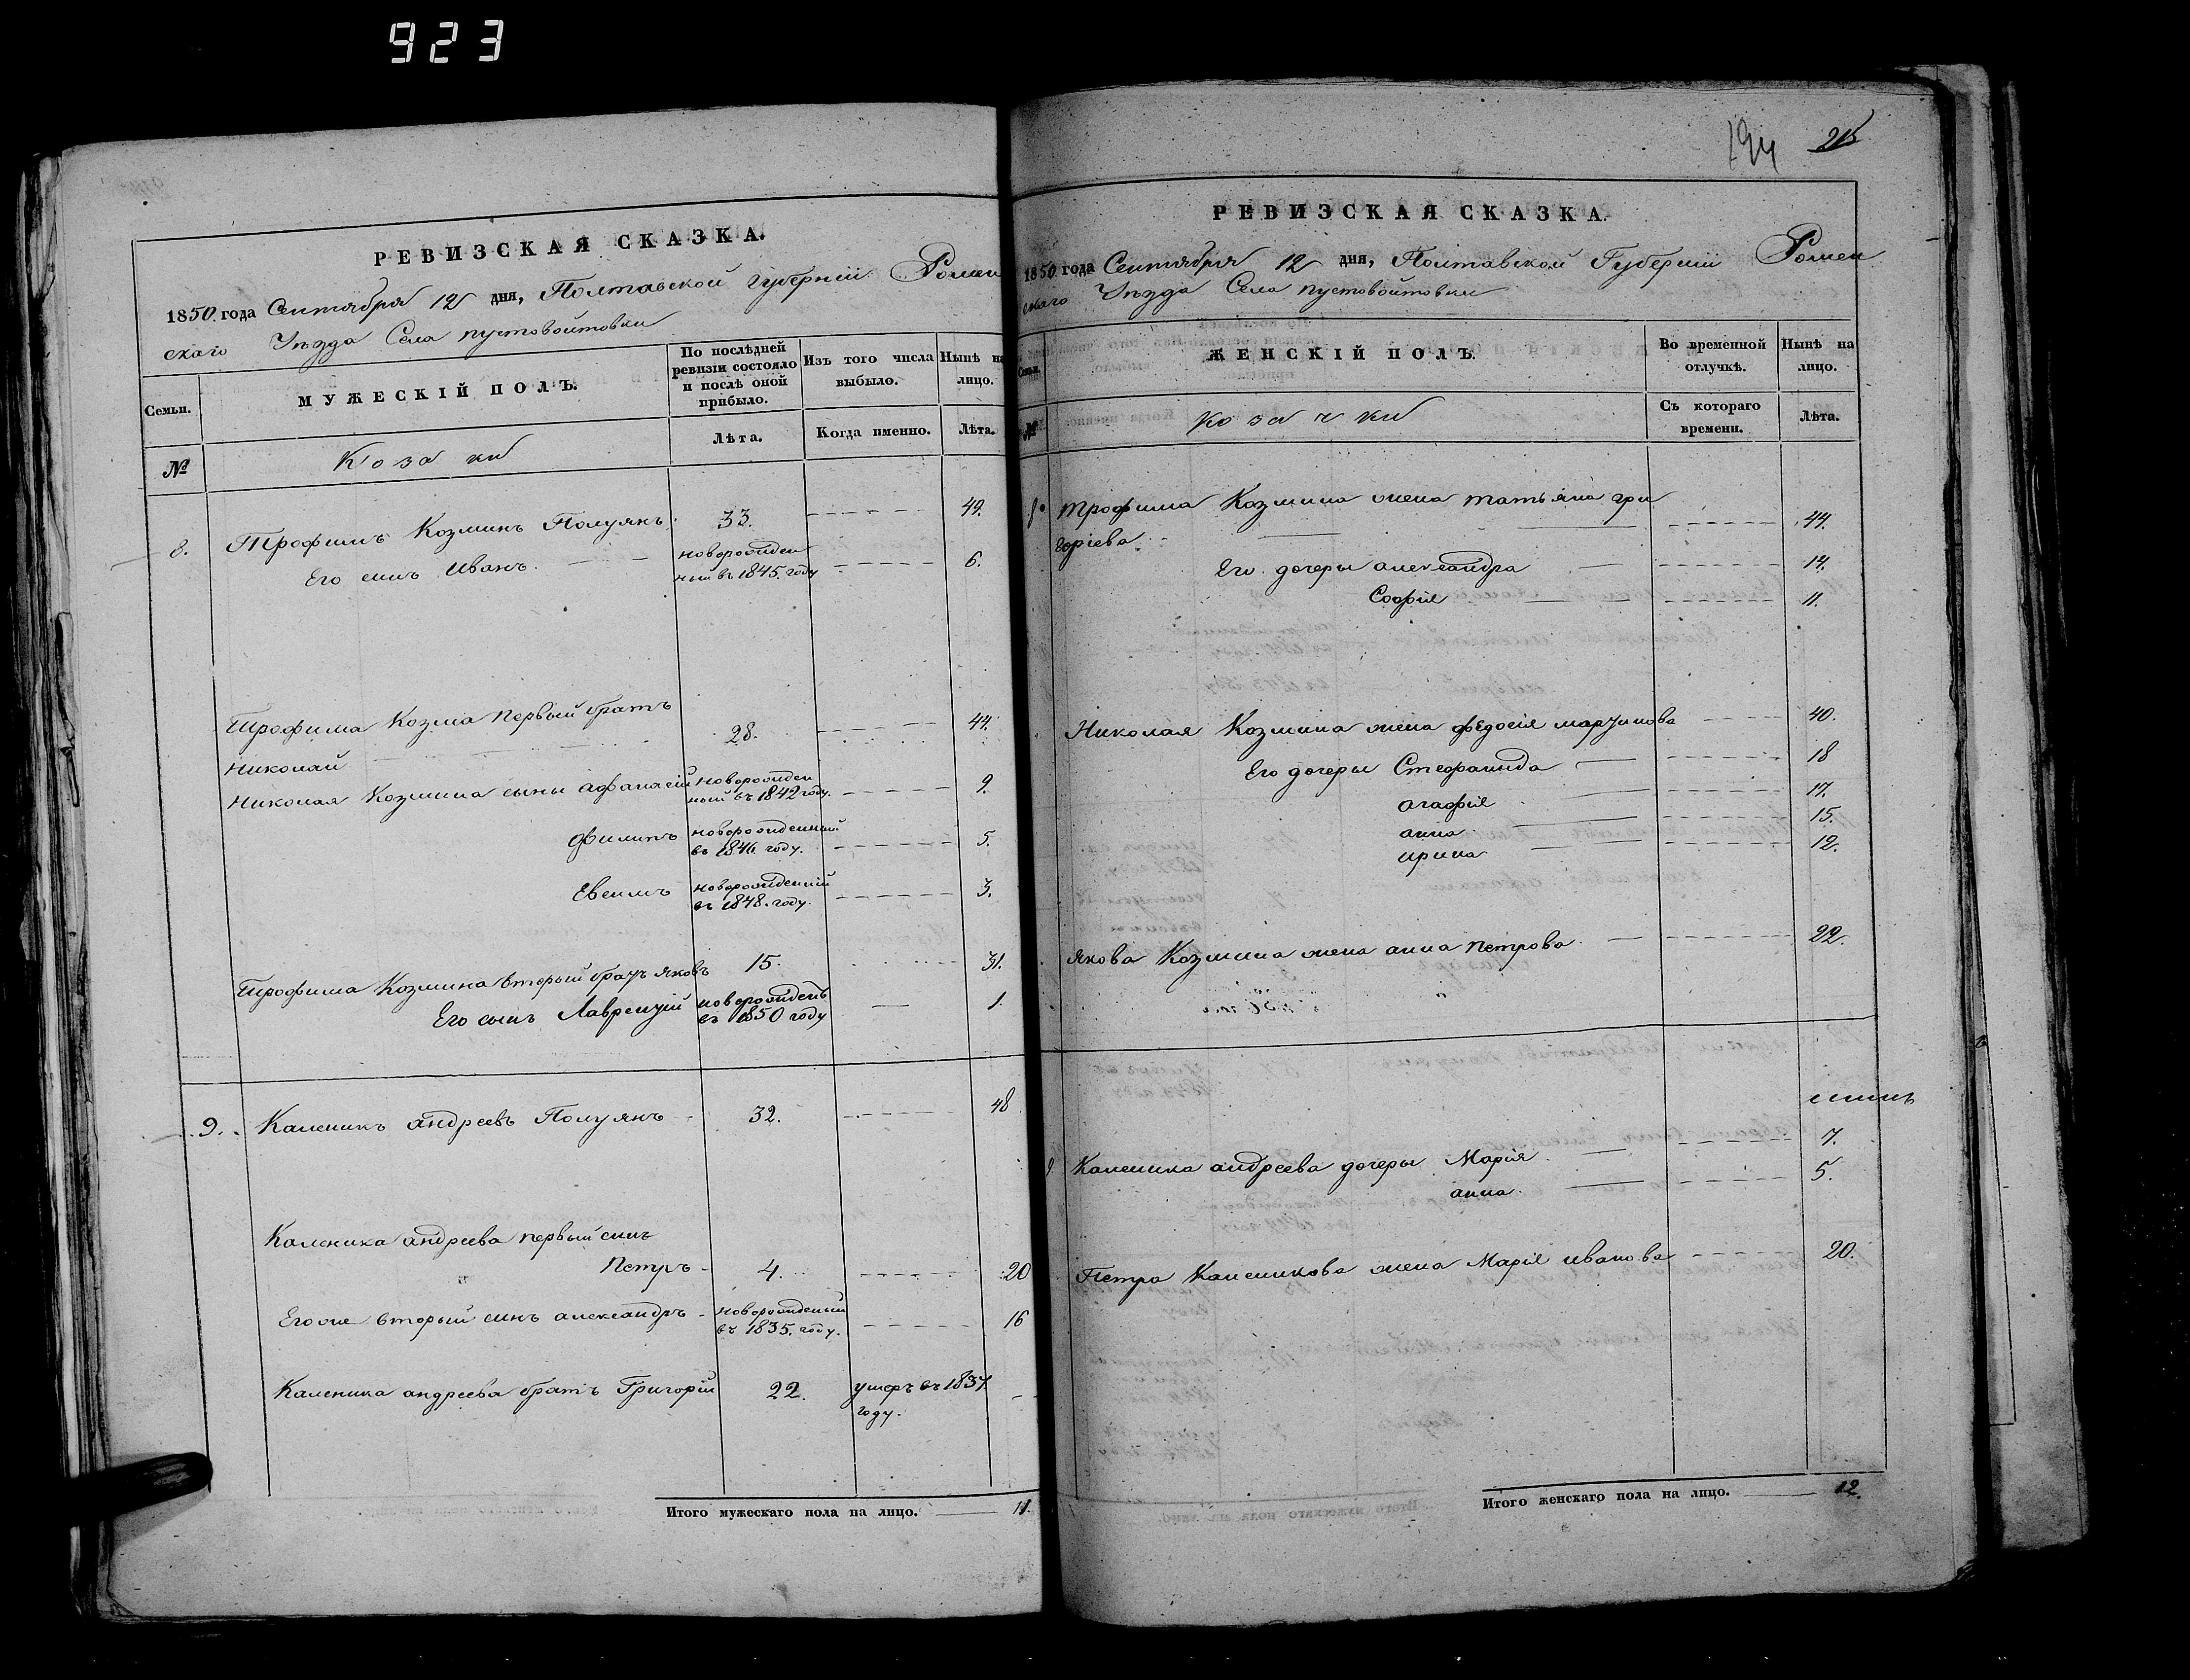 923
РЕВИЗСКАЯ СКАЗКА.
1850 года Сентября 12 дня, Полтавской Губерніи Ромен
скаго Уѣзда Села пустовойтовки
Семьи. МУЖЕСКІЙ ПОЛЪ. По послѣдней ревизіи состояло и послѣ оной прибыло. Изъ того числа выбыло. Нынѣ на лицо.
№ Козаки Лѣта. Когда именно. Лѣта.
8. Трофимъ Козминъ Полуянъ 33. 49.
Его сынъ Иванъ новорожден 6.
ный въ 1845. году
Трофима Козма первый братъ
Николай 28. 44.
Николая Козмина сыны афанасій новорожден 9.
ный въ 1842 году.
филипъ новорожденный 5.
въ 1846 году.
Евѳимъ новорожденній 3.
въ 1848. году.
Трофима Козмина вторый братъ яковъ 15. 31.
Его сынъ Лаврентій новорожденъ 1.
въ 1850 году
9. Каленикъ андреевъ Полуянъ 32. 48.
Каленика андреева первый сынъ
Петръ 4. 20
Его же вторый синъ александръ новорожденый 16
въ 1835. году.
Каленика андреева братъ Григорій 22. умеръ въ 1837.
году.
Итого мужескаго пола на лицо. 11.
194 215
РЕВИЗСКАЯ СКАЗКА.
1850 года Сентября 12 дня, Полтавской Губерніи Ромен
скаго Уѣзда Села пустовойтовки
Семьи. ЖЕНСКІЙ ПОЛЪ. Во временной отлучкѣ. Нынѣ на лицо.
№ козачки Съ котораго времени. Лѣта.
8. Трофима Козмина жена татьяна гри
горіева 44.
Его дочеры александра 14.
Софія 11.
Николая Козмина жена федосія марушова 40.
Его дочеры Стефанида 18
агафія 17.
анна 15.
ирина 12.
якова Козмина жена анна петрова 22.
9 Каленика андреева дочеры Марія 7.
анна 5.
Петра Каленикова жена Марія иванова 20.
Итого женскаго пола на лицо. 12.